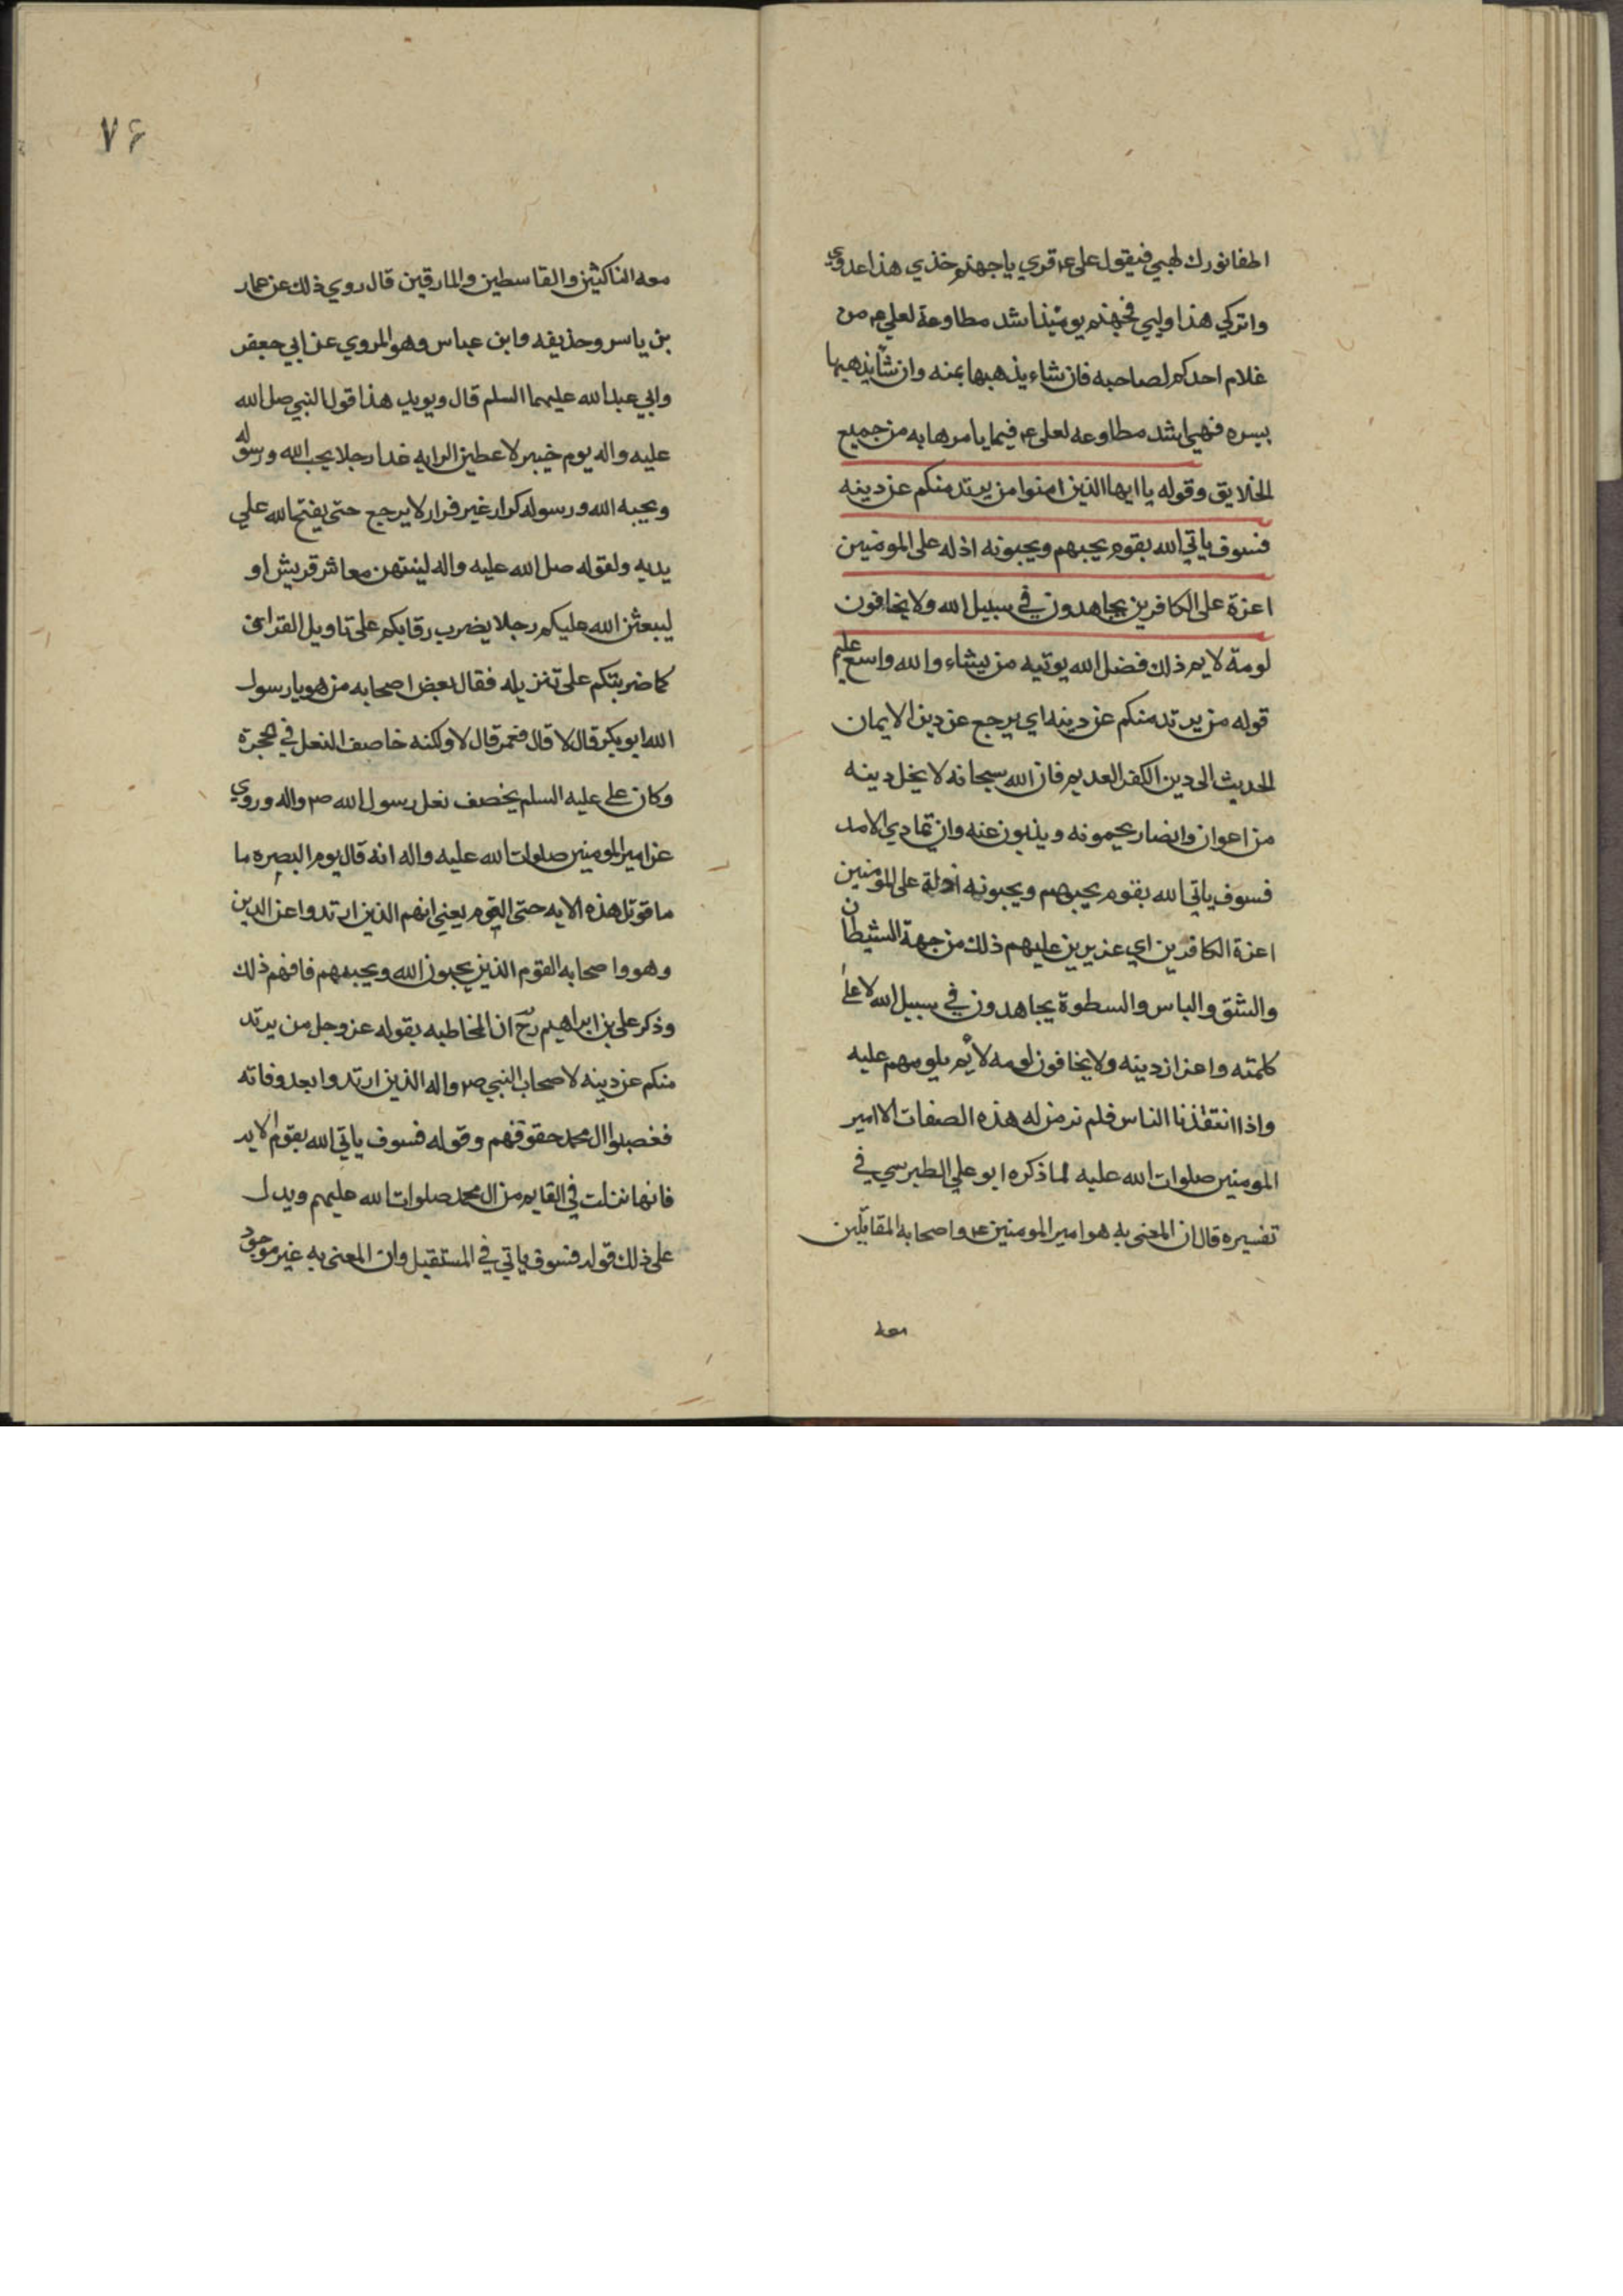 اطفا نورك لهبي فيقول علي ع قري يا جهنم خذي هذا عدوي
واتركي هذا وليي فجهنم يومئذ اشد مطاوعة لعلي ع من
غلام احدكم لصاحبه فان شاء يذهبها يمنه وان شا يذهبها
يسره فهي اشد مطاوعه لعلي ع فيما يامرها به من جميع
الخلايق وقوله يا ايها الذين امنوا من يرتد منكم عن دينه
فسوف ياتي الله بقوم يحبهم ويحبونه اذله على المومنين
اعزة على الكافرين يجاهدون في سبيل الله ولا يخافون
لومة لايم ذلك فضل الله يوتيه من يشاء والله واسع عليم
قوله من يرتد منكم عن دينه اي يرجع عن دين الايمان
الحديث الى دين الكفر العديم فان الله سبحانه لا يخل دينه
من اعوان وانصار يحمونه ويذبون عنه وان تمادي الامد
فسوف ياتي الله بقوم يحبهم ويحبونه اذلة على المومنين
اعزة الكافرين اي عزيرين عليهم ذلك من جهة الشيطان
والشق والباس والسطوة يجاهدون في سبيل الله لاعلا
كلمته واعزاز دينه ولا يخافون لومه لائم يلومهم عليه
واذا انتقذنا الناس فلم نر من له هذه الصفات الا امير
المومنين صلوات الله عليه لما ذكره ابو علي الطبرسي في
تفسيره قال ان المعنى به هو امير المومنين ع واصحابه المقاتلين
معه
٧۶
معه الناكثين والقاسطين والمارقين قال روي ذلك عن عمار
بن ياسر وحذيفه وابن عباس وهو المروي عن ابي جعفر
وابي عبد الله عليهما السلم قال ويويد هذا قول النبي صل الله
عليه واله يوم خيبر لاعطين الرايه غدا رجلا يحب الله ورسوله
ويحبه الله ورسوله كرار غير فرار لا يرجع حتى يفتح الله علي
يديه ولقوله صل الله عليه واله لينتهن معاشر قريش او
ليبعثن الله عليكم رجلا يضرب رقابكم على تاويل القران
كما ضربتكم على تنزيله فقال بعض اصحابه من هو يا رسول
الله ابو بكر قال لا قال فعمر قال لا ولكنه خاصف النعل في الحجرة
وكان علي عليه السلم يخصف نعل رسول الله ص واله وروي
عن امير المومنين صلوات الله عليه واله انه قال يوم البصره ما
ما قوتل هذه الايه حتى اليوم يعني انهم الذين ارتدوا عن الدين
وهو واصحابه القوم الذين يحبون الله ويحبهم فافهم ذلك
وذكر علي بن ابراهيم رح ان المخاطبه بقوله عز وجل من يرتد
منكم عن دينه لاصحاب النبي ص واله الذين ارتدوا بعد وفاته
فغصبوا ال محمد حقوقهم وقوله فسوف ياتي الله بقوم الايه
فانها نزلت في القايم من ال محمد صلوات الله عليهم ويدل
على ذلك قوله فسوف ياتي في المستقبل وان المعنى به غير موجود